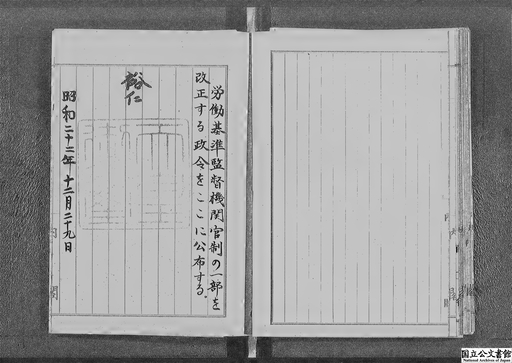 労働基準監督機関官制の一部を
改正する政令をここに公布する。
裕仁
昭和二十二年十二月二十九日
内閣
国立公文書館
National Archives of Japan